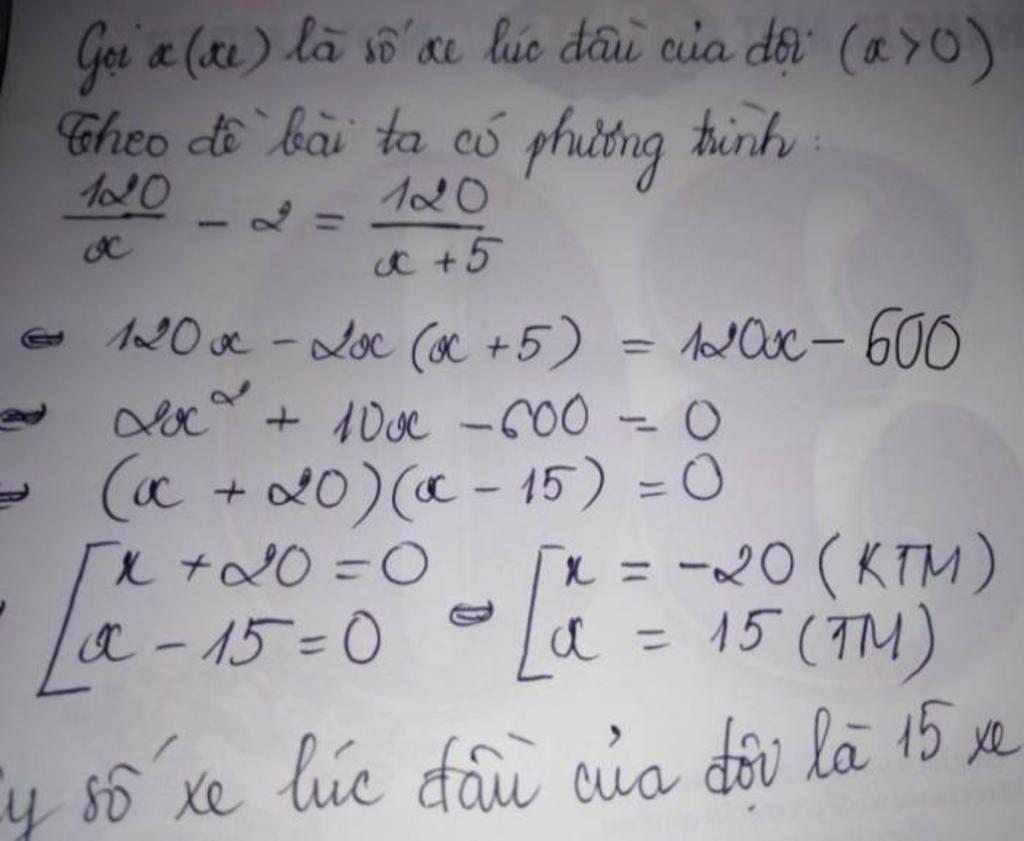 Gọi x (xe) là số xe lúc đầu của đội (x > 0)
Theo đề bài ta có phương trình:
120/x - 2 = 120/(x + 5)
⇔ 120x - 2x (x + 5) = 120x - 600
⇔ 2x² + 10x - 600 = 0
⇔ (x + 20)(x - 15) = 0
[x + 20 = 0 ⇔ [x = -20 (KTM)
[x - 15 = 0 [x = 15 (TM)
y số xe lúc đầu của đội là 15 xe